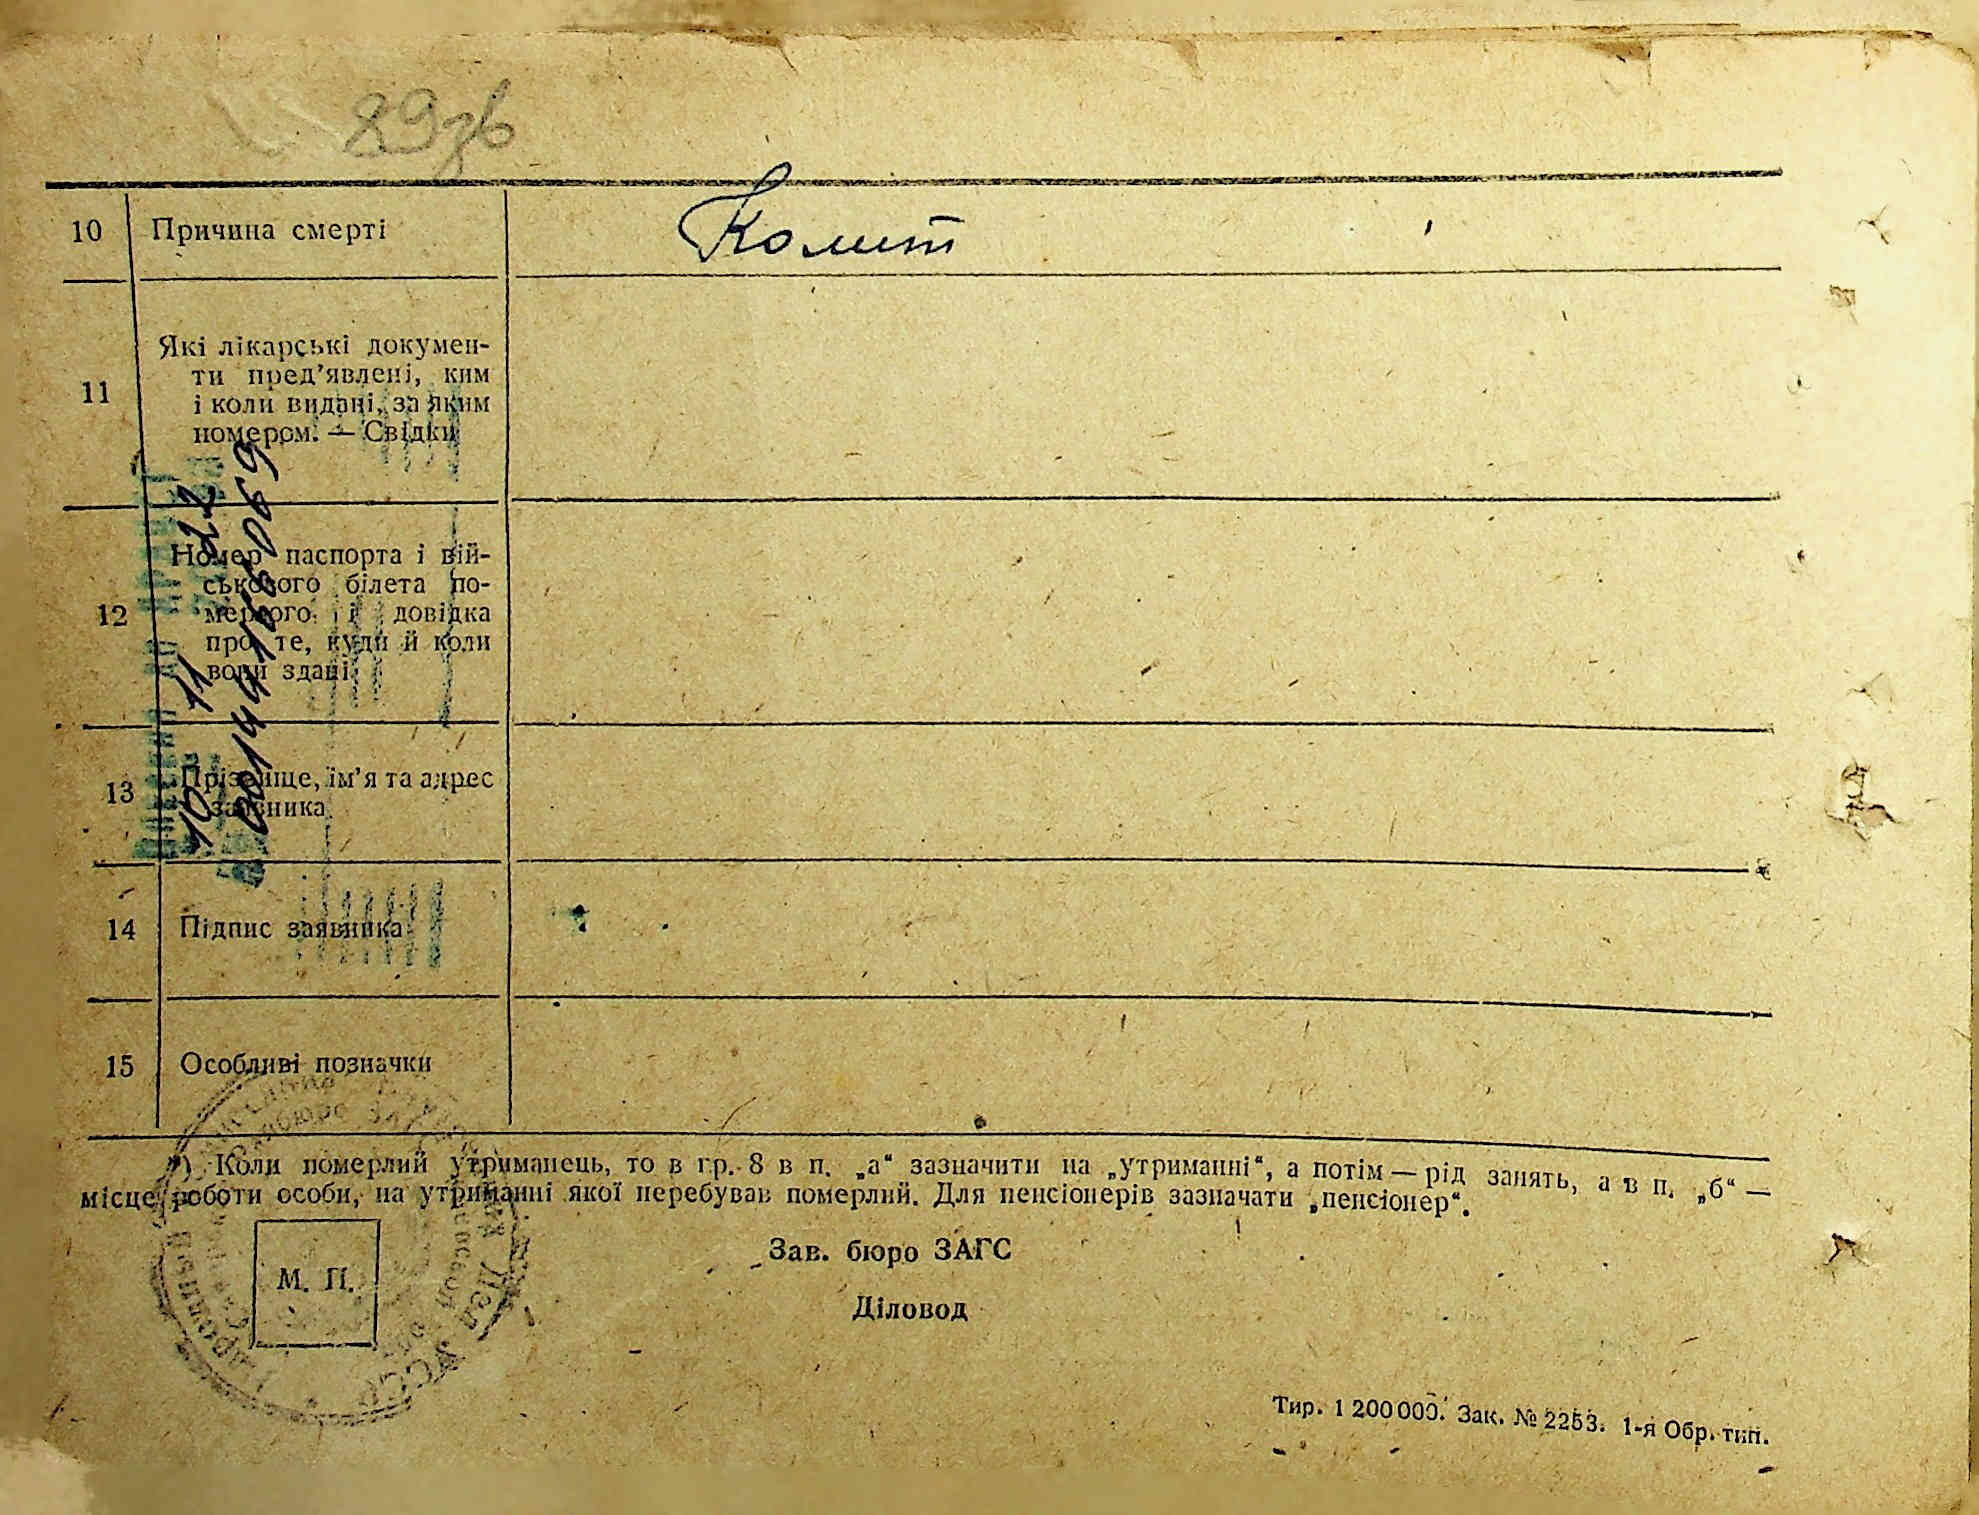 29зв
10 Причина смерті Колит
11 Які лікарські докумен-
ти пред’явлені, ким
і коли видані, за яким
номером. — Свідки
12 Номер паспорта і вій-
ськового білета по-
мерлого і довідка
про те, куди й коли
вони здані
13 Прізвище, ім’я та адрес
заявника
10 11 22
14 Підпис заявника
15 Особливі позначки
*) Коли померлий утриманець, то в гр. 8 в п. „а“ зазначити на „утриманні“, а потім — рід занять, а в п. „б“ —
місце роботи особи, на утриманні якої перебував померлий. Для пенсіонерів зазначати „пенсіонер“.
Зав. бюро ЗАГС
М. П.
Діловод
УССР
Тир. 1 200 000. Зак. № 2253. 1-я Обр. тип.